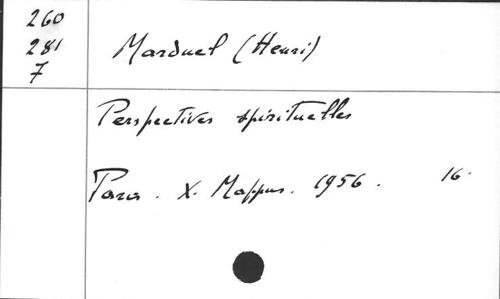 260
281
7
Marduel (Henri)
Perspectives spirituelles
Paris. X. Mappus. 1956. 16°